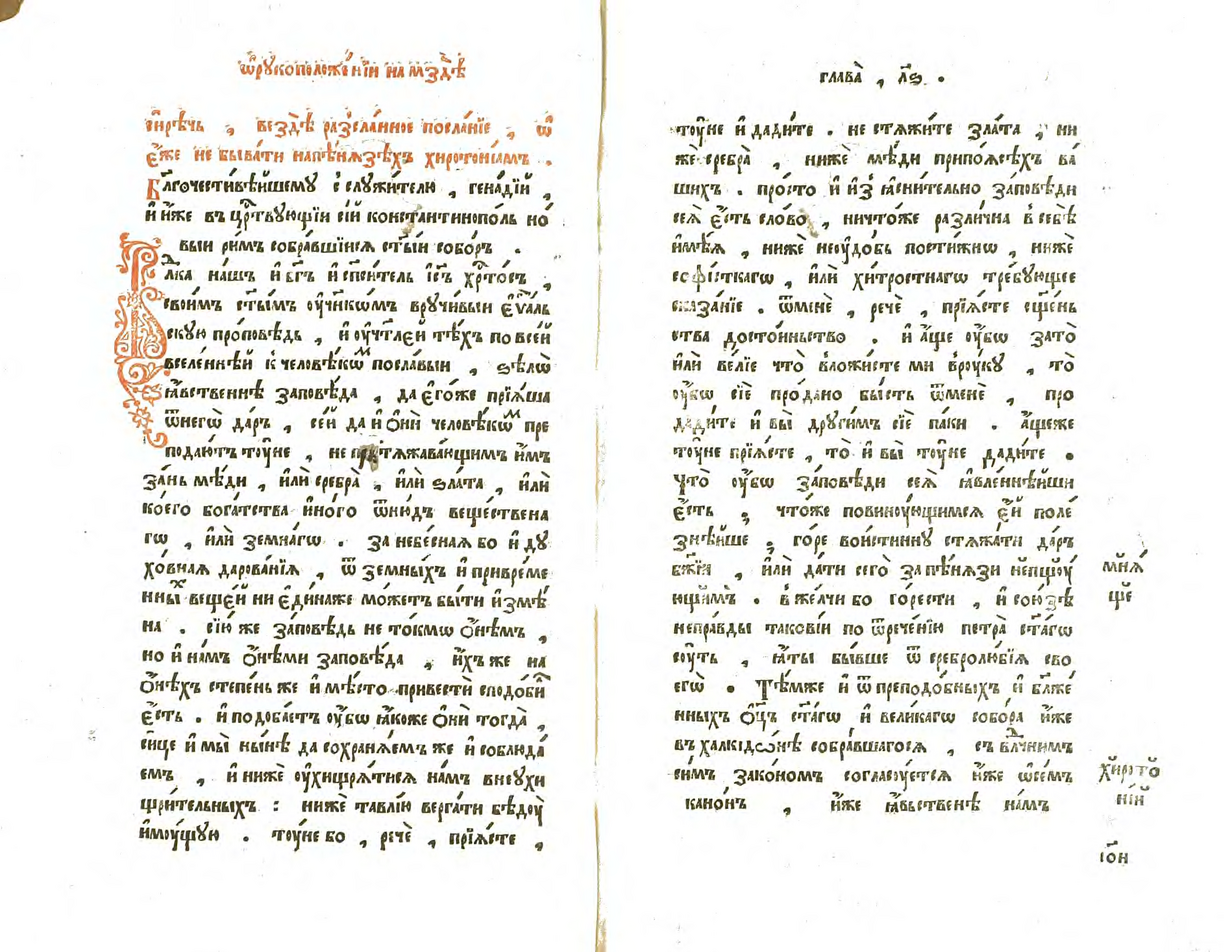 ѿрꙋкоположе́нїи на мздѣ̀
си́рѣчь , вездѣ̀ разсла́нное посла́нїе , ѿ
є҆́же не быва́ти напѣ́нѧзѣхъ хиротонїа́мъ .
Бл҃гочести́вѣйшему сслужи́телю , гена́дїй ,
и҆ и҆́же въ црⷭ҇твующїи се́й константинопо́ль но́
выи ри́мъ собра́вшїисѧ ст҃ы́и собо́ръ .
Влⷣка нашъ и҆ бг҃ъ и҆ сп҃си́тель і҆с҃ъ хрⷭ҇то́съ ,
свои҆́мъ ст҃ы́мъ ѹ҆чн҃кѡмъ вручи́выи є҆ѵⷢ҇аль
скую про́повѣдь , и҆ ѹ҆чт҃лей тѣ́хъ по все́й
вселе́ннѣй к человѣ́кѡⷨ посла́выи , ѕѣлѡ̀
ꙗ҆́вственнѣ заповѣ́да , да є҆го́же прїѧ́ша
ѿнегѡ̀ да́ръ , се́й да и҆ ѻ҆ни́ человѣ́кѡⷨ пре
подаю́тъ тѹ́не , не притѧжава́ющимъ и҆́мъ
за́нь мѣ́ди , и҆лѝ сребра̀ , и҆лѝ ѕла́та , и҆лѝ
коего̀ бога́тства и҆́ного ѿню́дъ веще́ствена
гѡ , и҆лѝ земна́гѡ . за небе́снаѧ бо и҆ дꙋ
хо́внаѧ дарова́нїѧ , ѿ земны́хъ и҆ привре́ме
нныⷯ веще́й ни є҆ди́наже мо́жетъ бы́ти и҆змѣ́
на . сїю́ же за́повѣдь не то́кмѡ ѻ҆нѣ́мъ ,
но и҆ на́мъ ѻ҆нѣ́ми заповѣ́да , и҆́хъ же на
ѻ҆нѣ́хъ степе́нь же и҆ мѣ́сто привестѝ сподо́биⷧ
є҆́сть . и҆ подоба́етъ ѹ҆́бѡ ꙗ҆́коже ѻ҆нѝ тогда̀ ,
си́це и҆ мы̀ ны́нѣ да сохранѧ́емъ же и҆ соблюда́
емъ , и҆ нижѐ ѹ҆хищрѧ́тисѧ на́мъ внеѹхи
щри́тельныхъ : нижѐ тавлі́ю верга́ти бѣдѹ̀
и҆мѹ́щую . тѹ́не бо , речѐ , прїѧ́сте ,
глава̀ , л҃ѕ .
тѹ́не и҆ дади́те . не стѧжи́те зла́та , ни
жѐ сребра̀ , нижѐ мѣ́ди при по́ѧсѣхъ ва́
шихъ . про́сто и҆ и҆з̾ ꙗ҆сни́тельно за́повѣди
сеѧ̀ є҆́сть сло́во , ничто́же разли́чна в себѣ̀
и҆мѣ́ѧ , нижѐ неѹдо́бь пости́жнѡ , нижѐ
софи́сткагѡ , и҆лѝ хи́тростнагѡ тре́бующее
сказа́нїе . ѿменѐ , речѐ , прїѧ́сте сщ҃е́нь
ства досто́иньство . и҆ а҆́ще ѹ҆́бѡ зато̀
и҆лѝ ве́лїе что̀ вложи́сте ми вро́уку , то̀
ѹ҆́бѡ сїѐ про́дано бы́сть ѿменѐ , про
дади́те и҆ вы̀ други́мъ сїѐ па́ки . а҆́щеже
тѹ́не прїѧ́сте , то̀ и҆ вы̀ тѹ́не дади́те .
Что̀ ѹ҆́бѡ за́повѣди сеѧ̀ ꙗ҆вле́ннѣйши
є҆́сть , что́же повинѹ́ющимсѧ є҆́й поле́
знѣйше , го́ре вои́стинну стѧжа́ти да́ръ
бж҃їи , и҆лѝ да́ти сего̀ за пѣ́нѧзи непщѹ́
ющимъ . в же́лчи бо го́рести , и҆ сою́зѣ
непра́вды такові́и по ѿрече́нїю петра̀ ст҃а́гѡ
сѹ́ть , ꙗ҆́ты бы́вше ѿ сребролю́бїѧ сво
егѡ̀ . Тѣ́мже и҆ ѿ преподо́бныхъ и҆ бл҃же́
нныхъ ѻ҆ц҃ъ ст҃а́гѡ и҆ вели́кагѡ собо́ра и҆́же
въ халкидо́нѣ собра́вшагосѧ , съ бл҃чнимъ
си́мъ зако́номъ согласѹ́етсѧ и҆́же ѡ҆се́мъ
кано́нъ , и҆́же ꙗ҆́вьственѣ на́мъ
мнѧ́
ще
хирото
ні́й
іѻн